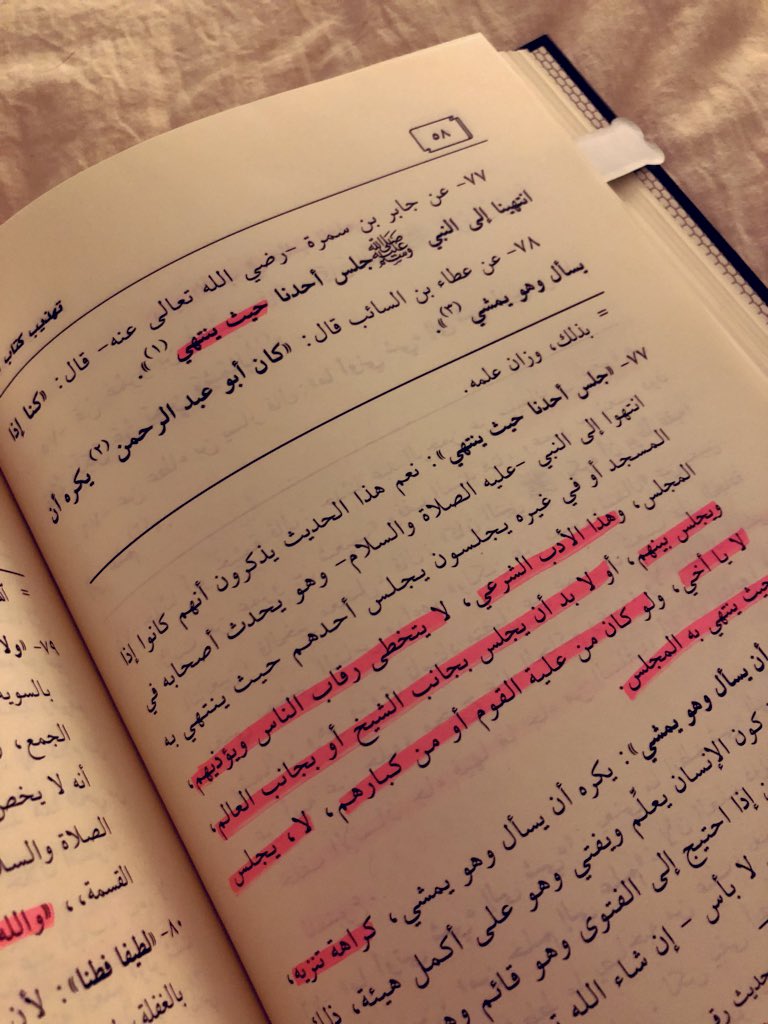 ٥٨
تهذيب كتاب
٧٧- عن جابر بن سمرة -رضي الله تعالى عنه- قال: «كنا إذا
انتهينا إلى النبي ﷺ جلس أحدنا حيث ينتهي (١)».
٧٨- عن عطاء بن السائب قال: «كان أبو عبد الرحمن (٢) يكره أن
يسأل وهو يمشي (٣)».
= بذلك، وزان علمه.
٧٧- «جلس أحدنا حيث ينتهي»: نعم هذا الحديث يذكرون أنهم كانوا إذا
انتهوا إلى النبي -عليه الصلاة والسلام- وهو يحدث أصحابه في
المسجد أو في غيره يجلسون يجلس أحدهم حيث ينتهي به
المجلس، وهذا الأدب الشرعي، لا يتخطى رقاب الناس ويؤذيهم،
ويجلس بينهم، أو لا بد أن يجلس بجانب الشيخ أو بجانب العالم،
لا يا أخي، ولو كان من علية القوم أو من كبارهم، لا، يجلس
حيث ينتهي به المجلس
أن يسأل وهو يمشي»: يكره أن يسأل وهو يمشي، كراهة تنزيه،
كون الإنسان يعلّم ويفتي وهو على أكمل هيئة، ذلك
إذا احتيج إلى الفتوى وهو قائم وهو
لا بأس - إن شاء الله
حديث
٧٩- «ولا
بالسوية
الجمع،
أنه لا يخص
الصلاة والسلا
القسمة،، «والله
٨٠- «لطيفا فطنا»: لأن
بالغفلة